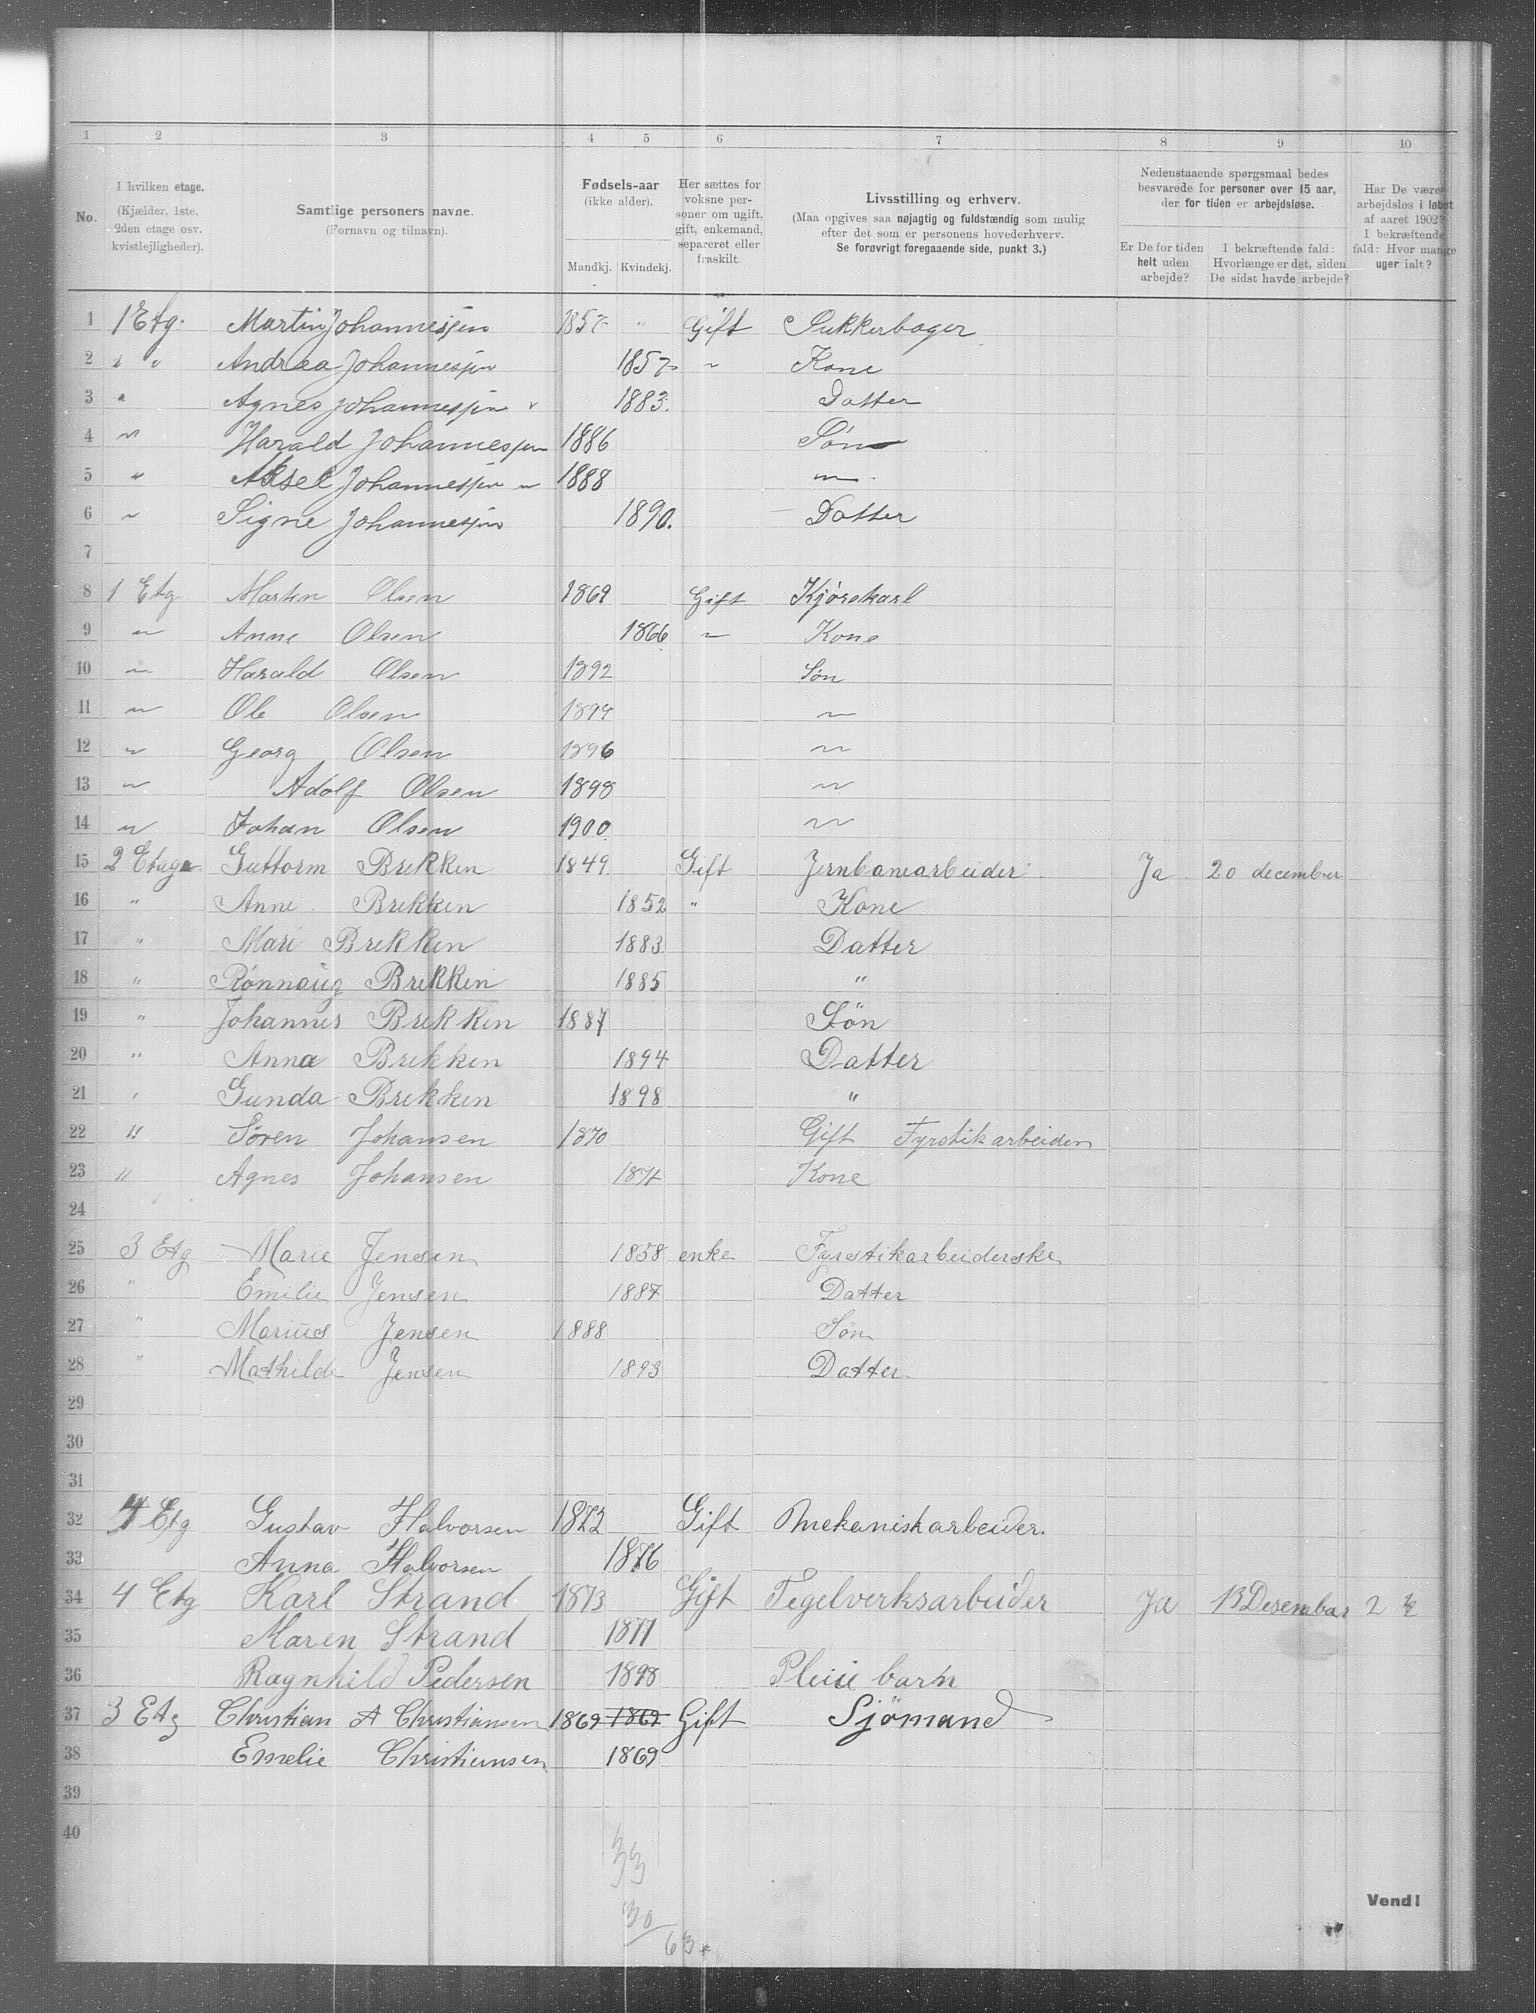 1 2 3 4 5 6 7 8 9 10
No.
I hvilken etage.
(Kjælder, 1ste,
2den etage osv.
kvistlejligheder).
Samtlige personers navne.
(Fornavn og tilnavn).
Fødsels-aar
(ikke alder).
Mandkj. Kvindekj.
Her sættes for
voksne per-
soner om ugift,
gift, enkemand,
separeret eller
fraskilt.
Livsstilling og erhverv.
(Maa opgives saa nøjagtig og fuldstændig som mulig
efter det som er personens hovederhverv.
Se forøvrigt foregaaende side, punkt 3.)
Nedenstaaende spørgsmaal bedes
besvarede for personer over 15 aar,
der for tiden er arbejdsløse.
Er De for tiden
helt uden
arbejde?
I bekræftende fald:
Hvorlænge er det, siden
De sidst havde arbejde?
Har De været
arbejdsløs i løbet
af aaret 1902?
I bekræftende
fald: Hvor mange
uger ialt?
1 1 Etg. Martin Johannesen 1857 " Gift Sukkerbager
2 " " Andrea Johannesen 1857 " Kone
3 " Agnes Johannesen 1883 Datter
4 " Harald Johannesen 1886 Søn
5 " Aksel Johannesen 1888 "
6 " Signe Johannesen 1890. Datter
7
8 1 Etg Martin Olsen 1869 Gift Kjørekarl
9 " Anne Olsen 1866 " Kone
10 " Harald Olsen 1892 Søn
11 " Ole Olsen 1894 "
12 " Georg Olsen 1896 "
13 " Adolf Olsen 1898 "
14 " Johan Olsen 1900 "
15 2 Etage Guttorm Brekken 1849 Gift Jernbanearbeider Ja 20 december
16 " Anne Brekken 1852 " Kone
17 " Mari Brekken 1883 Datter
18 " Rønnaug Brekken 1885 "
19 " Johannes Brekken 1887 Søn
20 " Anna Brekken 1894 Datter
21 " Gunda Brekken 1898 "
22 " Søren Johansen 1870 Gift Fyrstikarbeider
23 " Agnes Johansen 1874 Kone
24
25 3 Etg Marie Jensen 1858 enke Fyrstikarbeiderske
26 " Emilie Jensen 1887 Datter
27 " Marius Jensen 1888 Søn
28 " Mathilde Jensen 1893 Datter
29
30
31
32 4 Etg Gustav Halvorsen 1872 Gift Mekaniskarbeider.
33 Anna Halvorsen 1876
34 4 Etg Karl Strand 1873 Gift Tegelverksarbeider Ja 13 Desember 2
35 Maren Strand 1871
36 Ragnhild Pedersen 1898 Pleie barn
37 3 Etg Christian A Christiansen 1869 1869 Gift Sjömand
38 Emelie Christiansen 1869
39
40
33
30
63
Vend!